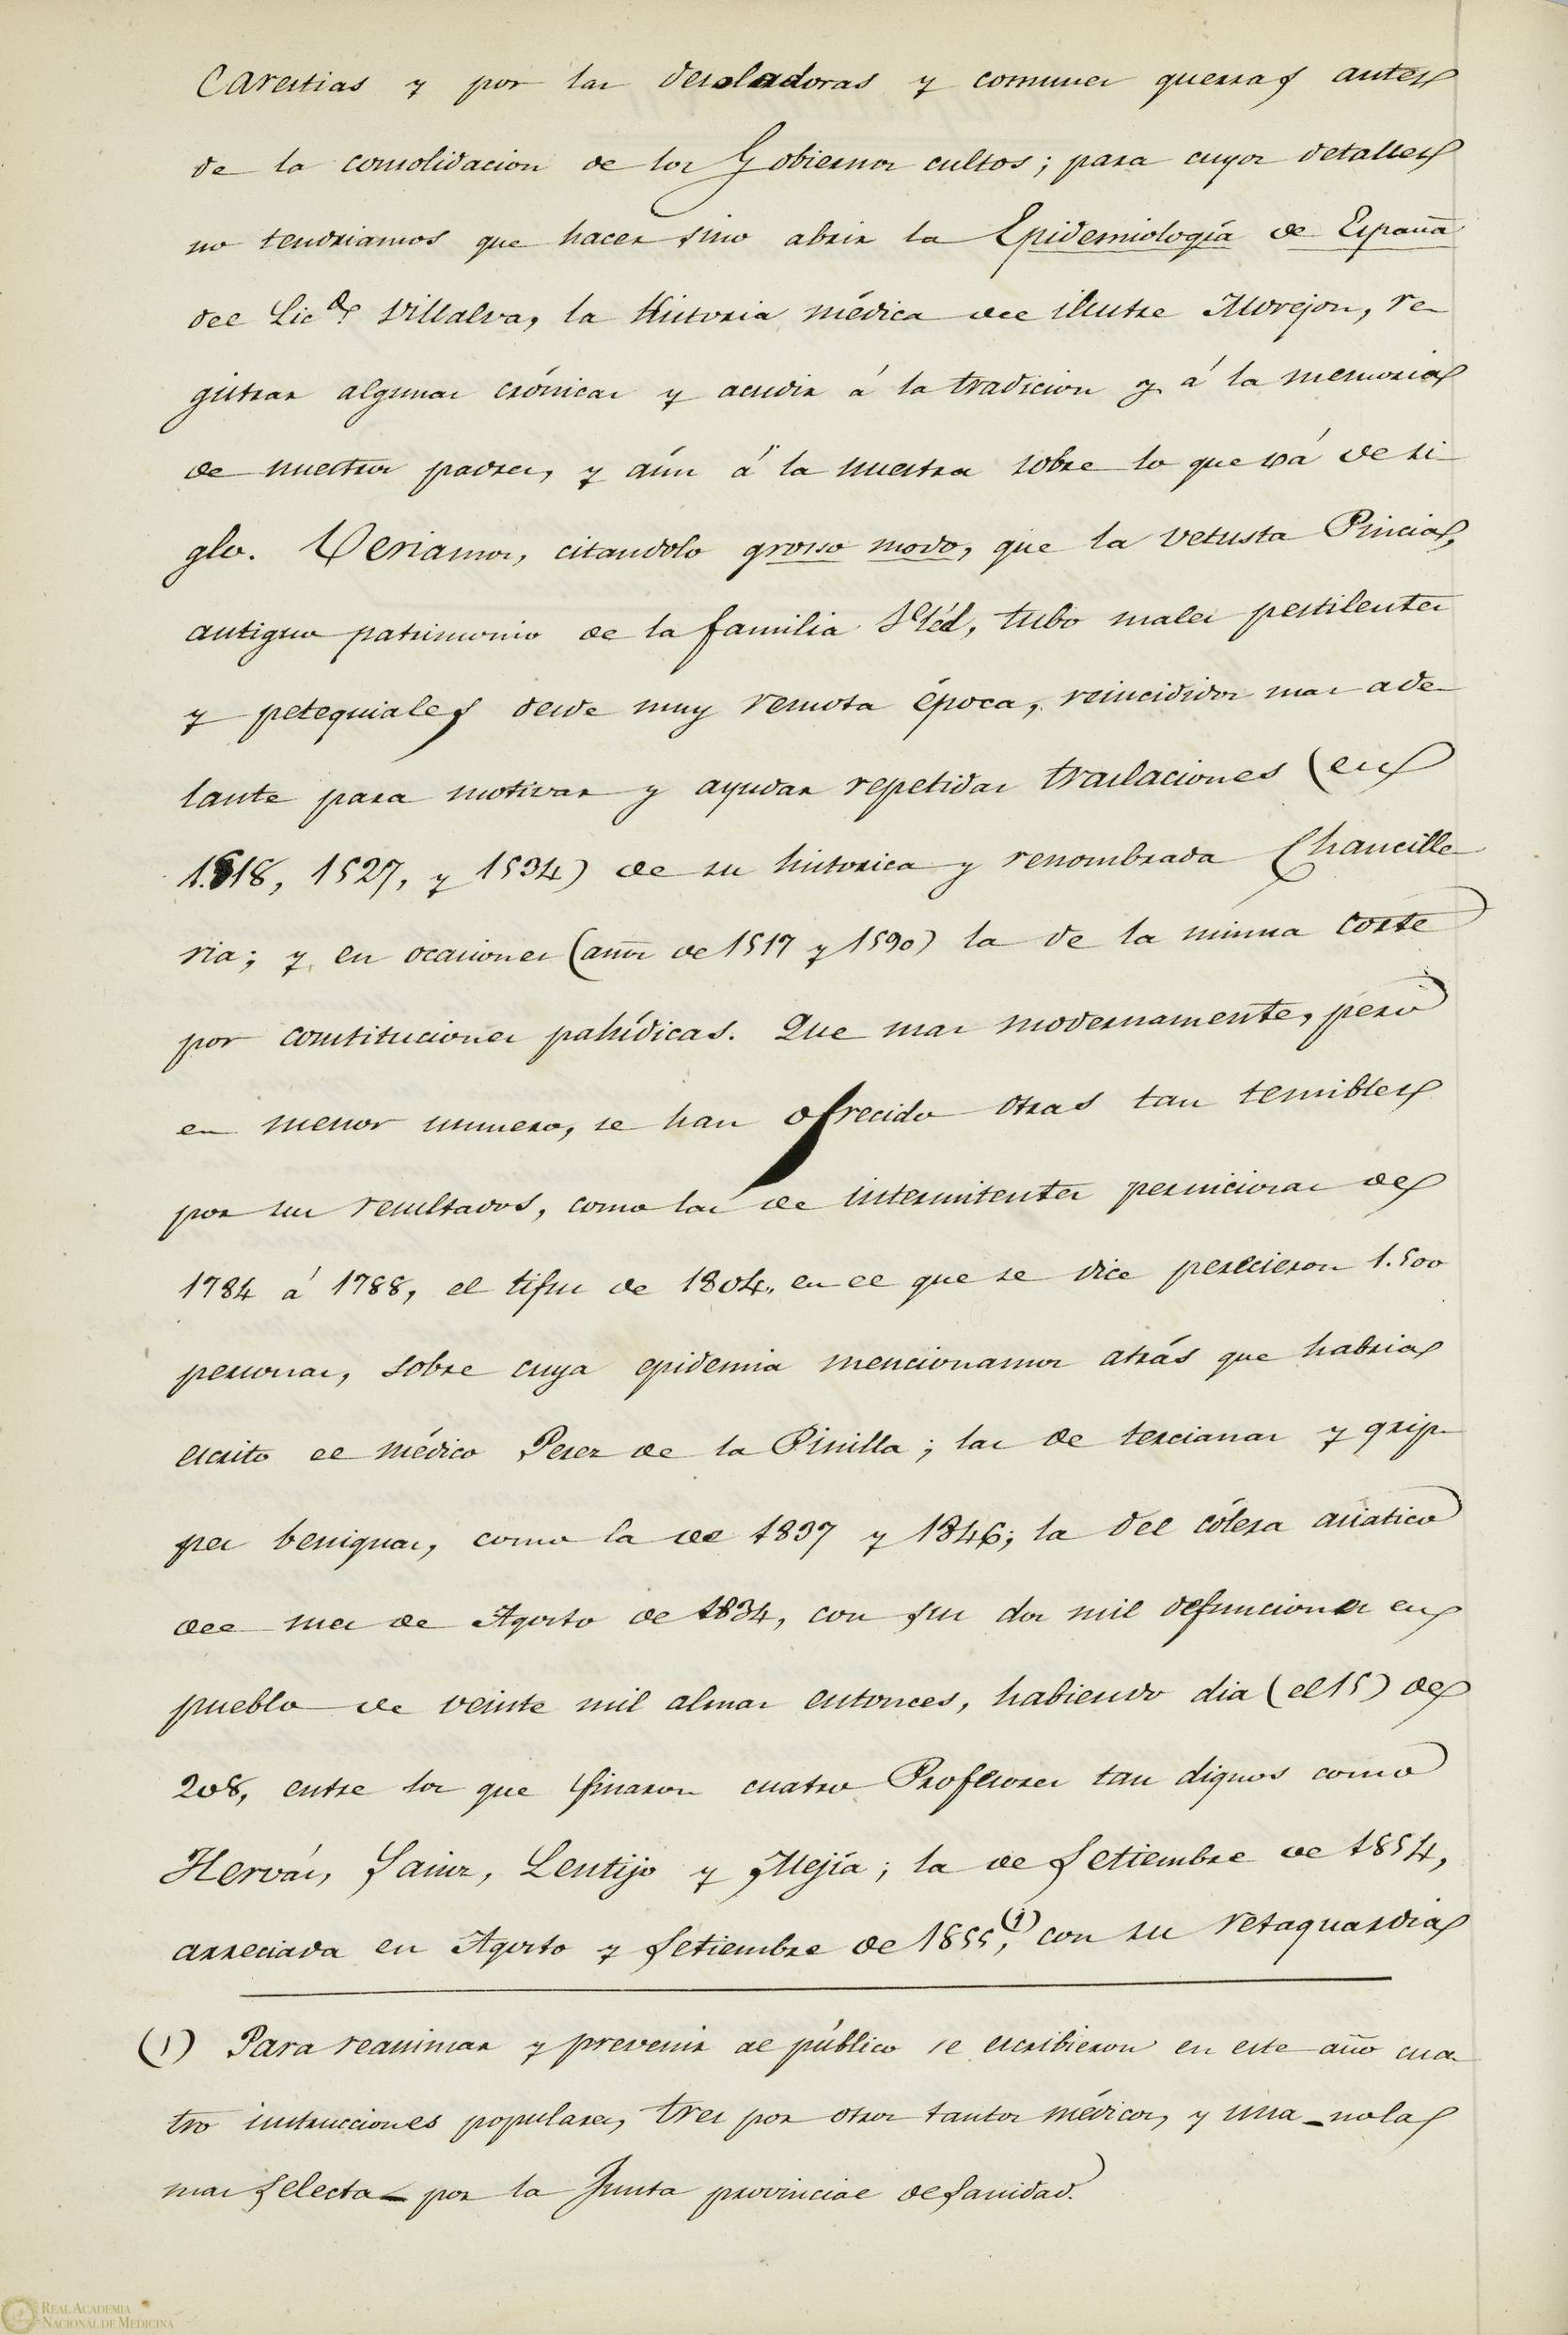 Carestias y por las desoladoras y comunes guerras antes
de la consolidacion de los Gobiernos cultos; para cuyos detalles
no tendriamos que hacer sino abrir la Epidemiología de España
del Lic.do Villalva, la Historia médica del ilustre Morejon, re-
gistrar algunas crónicas y acudir á la tradicion y á la memoria
de nuestros padres, y aún á la nuestra sobre lo que vá de si-
glo. Veriamos, citandolo grosso modo, que la vetusta Pincia,
antiguo patrimonio de la familia, tubo males pestilentes
y petequiales desde muy remota época, reincididos mas ade-
lante para motivar y ayudar repetidas traslaciones (en
1.518, 1527, y 1534) de su historica y renombrada Chancille-
ria; y en ocasiones (años de 1517 y 1590) la de la misma Corte
por constituciones palúdicas. Que mas modernamente, pero
en menor numero, se han ofrecido otras tan temibles
por sus resultados, como las de intermitentes perniciosas de
1784 á 1788, el tifus de 1804, en el que se dice perecieron 1.500
personas, sobre cuya epidemia mencionamos atrás que habria
escrito el médico Perez de la Pinilla; las de tercianas y grip-
pes benignas, como la de 1837 y 1846; la del cólera asiatico
del mes de Agosto de 1834, con sus dos mil defunciones en
pueblo de veinte mil almas entonces, habiendo dia (el 15) de
208, entre los que finaron cuatro Profesores tan dignos como
Hervás, Sainz, Lentijo y Mejía; la de Setiembre de 1854,
arreciada en Agosto y Setiembre de 1855,(1) con su retaguardia
(1) Para reanimar y prevenir al público se escribieron en este año cua-
tro instrucciones populares, tres por otros tantos médicos, y una - no la
mas selecta - por la Junta provincial de Sanidad.
REAL ACADEMIA
NACIONAL DE MEDICINA